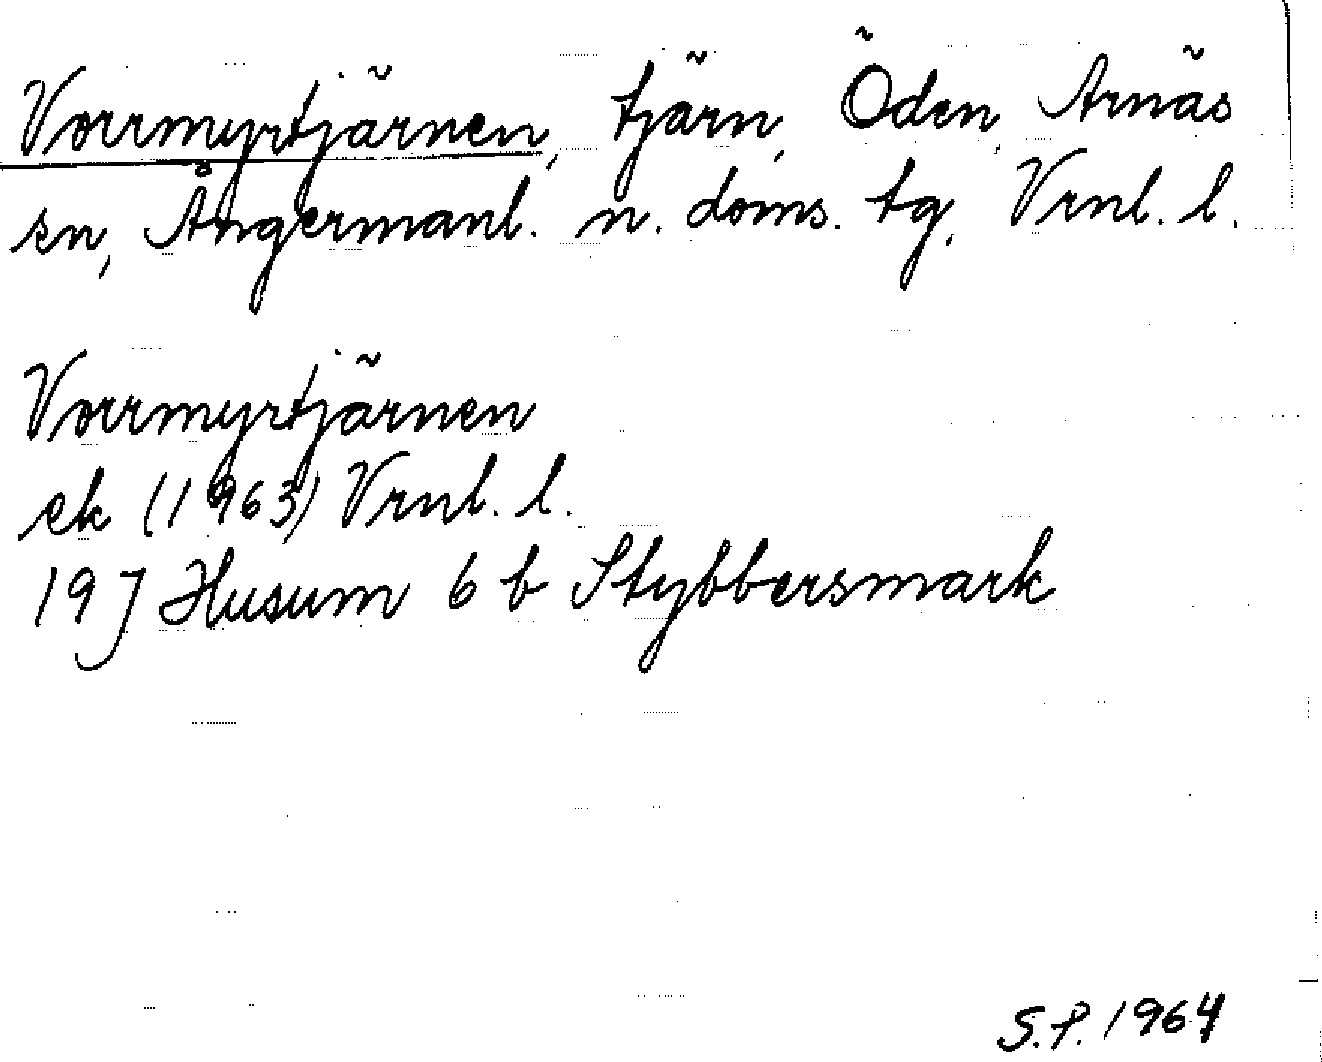 Vorrmyrtjärnen, tjärn, Öden, Arnäs
sn, Ångermanl. n. doms. tg, Vrnl. l.
Vorrmyrtjärnen
ek (1963) Vrnl. l.
19J Husum 6 b Stybbersmark
S.P. 1964